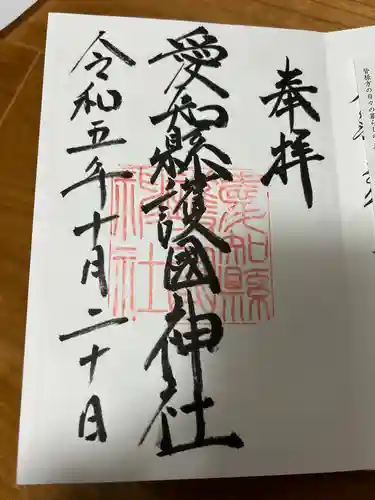 奉拝
愛知縣護國神社
令和五年十月二十日
愛知縣
護國
神社